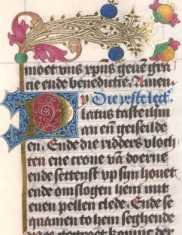 moet vns xpus geue gra
cie ende benedictie. Amen.
Die lect.
latus ihm
an en geiselde
en. Ende die ridders vloch
ten ene crone van doerne
ende settenst vp sijn houet
ende omslogen hem mit
enen pellen clede. Ende se
quamen to hem seghende